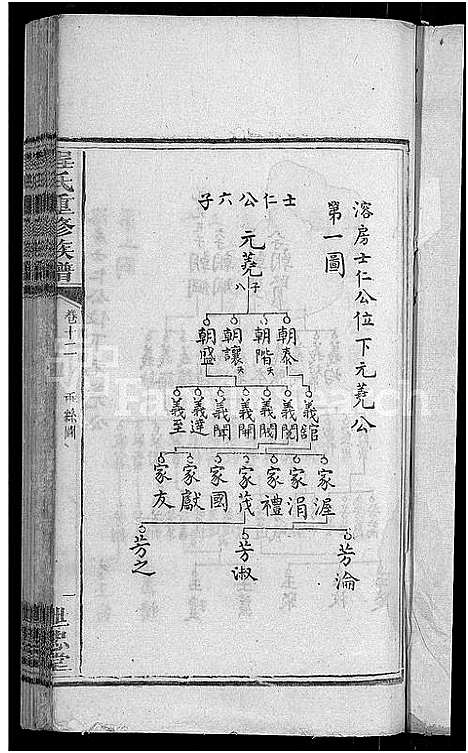 溶房士仁公位下元蕘公
第一圖
士仁公六子
元蕘
子八
朝泰
朝階夭
朝讓夭
朝盛
義館
義閲
義閣
義開
義聞
義達
義至
家渥
家涓
家禮
家茂
家國
家獻
家友
芳淪
芳淑
芳之
程氏重修族譜
卷十二
一